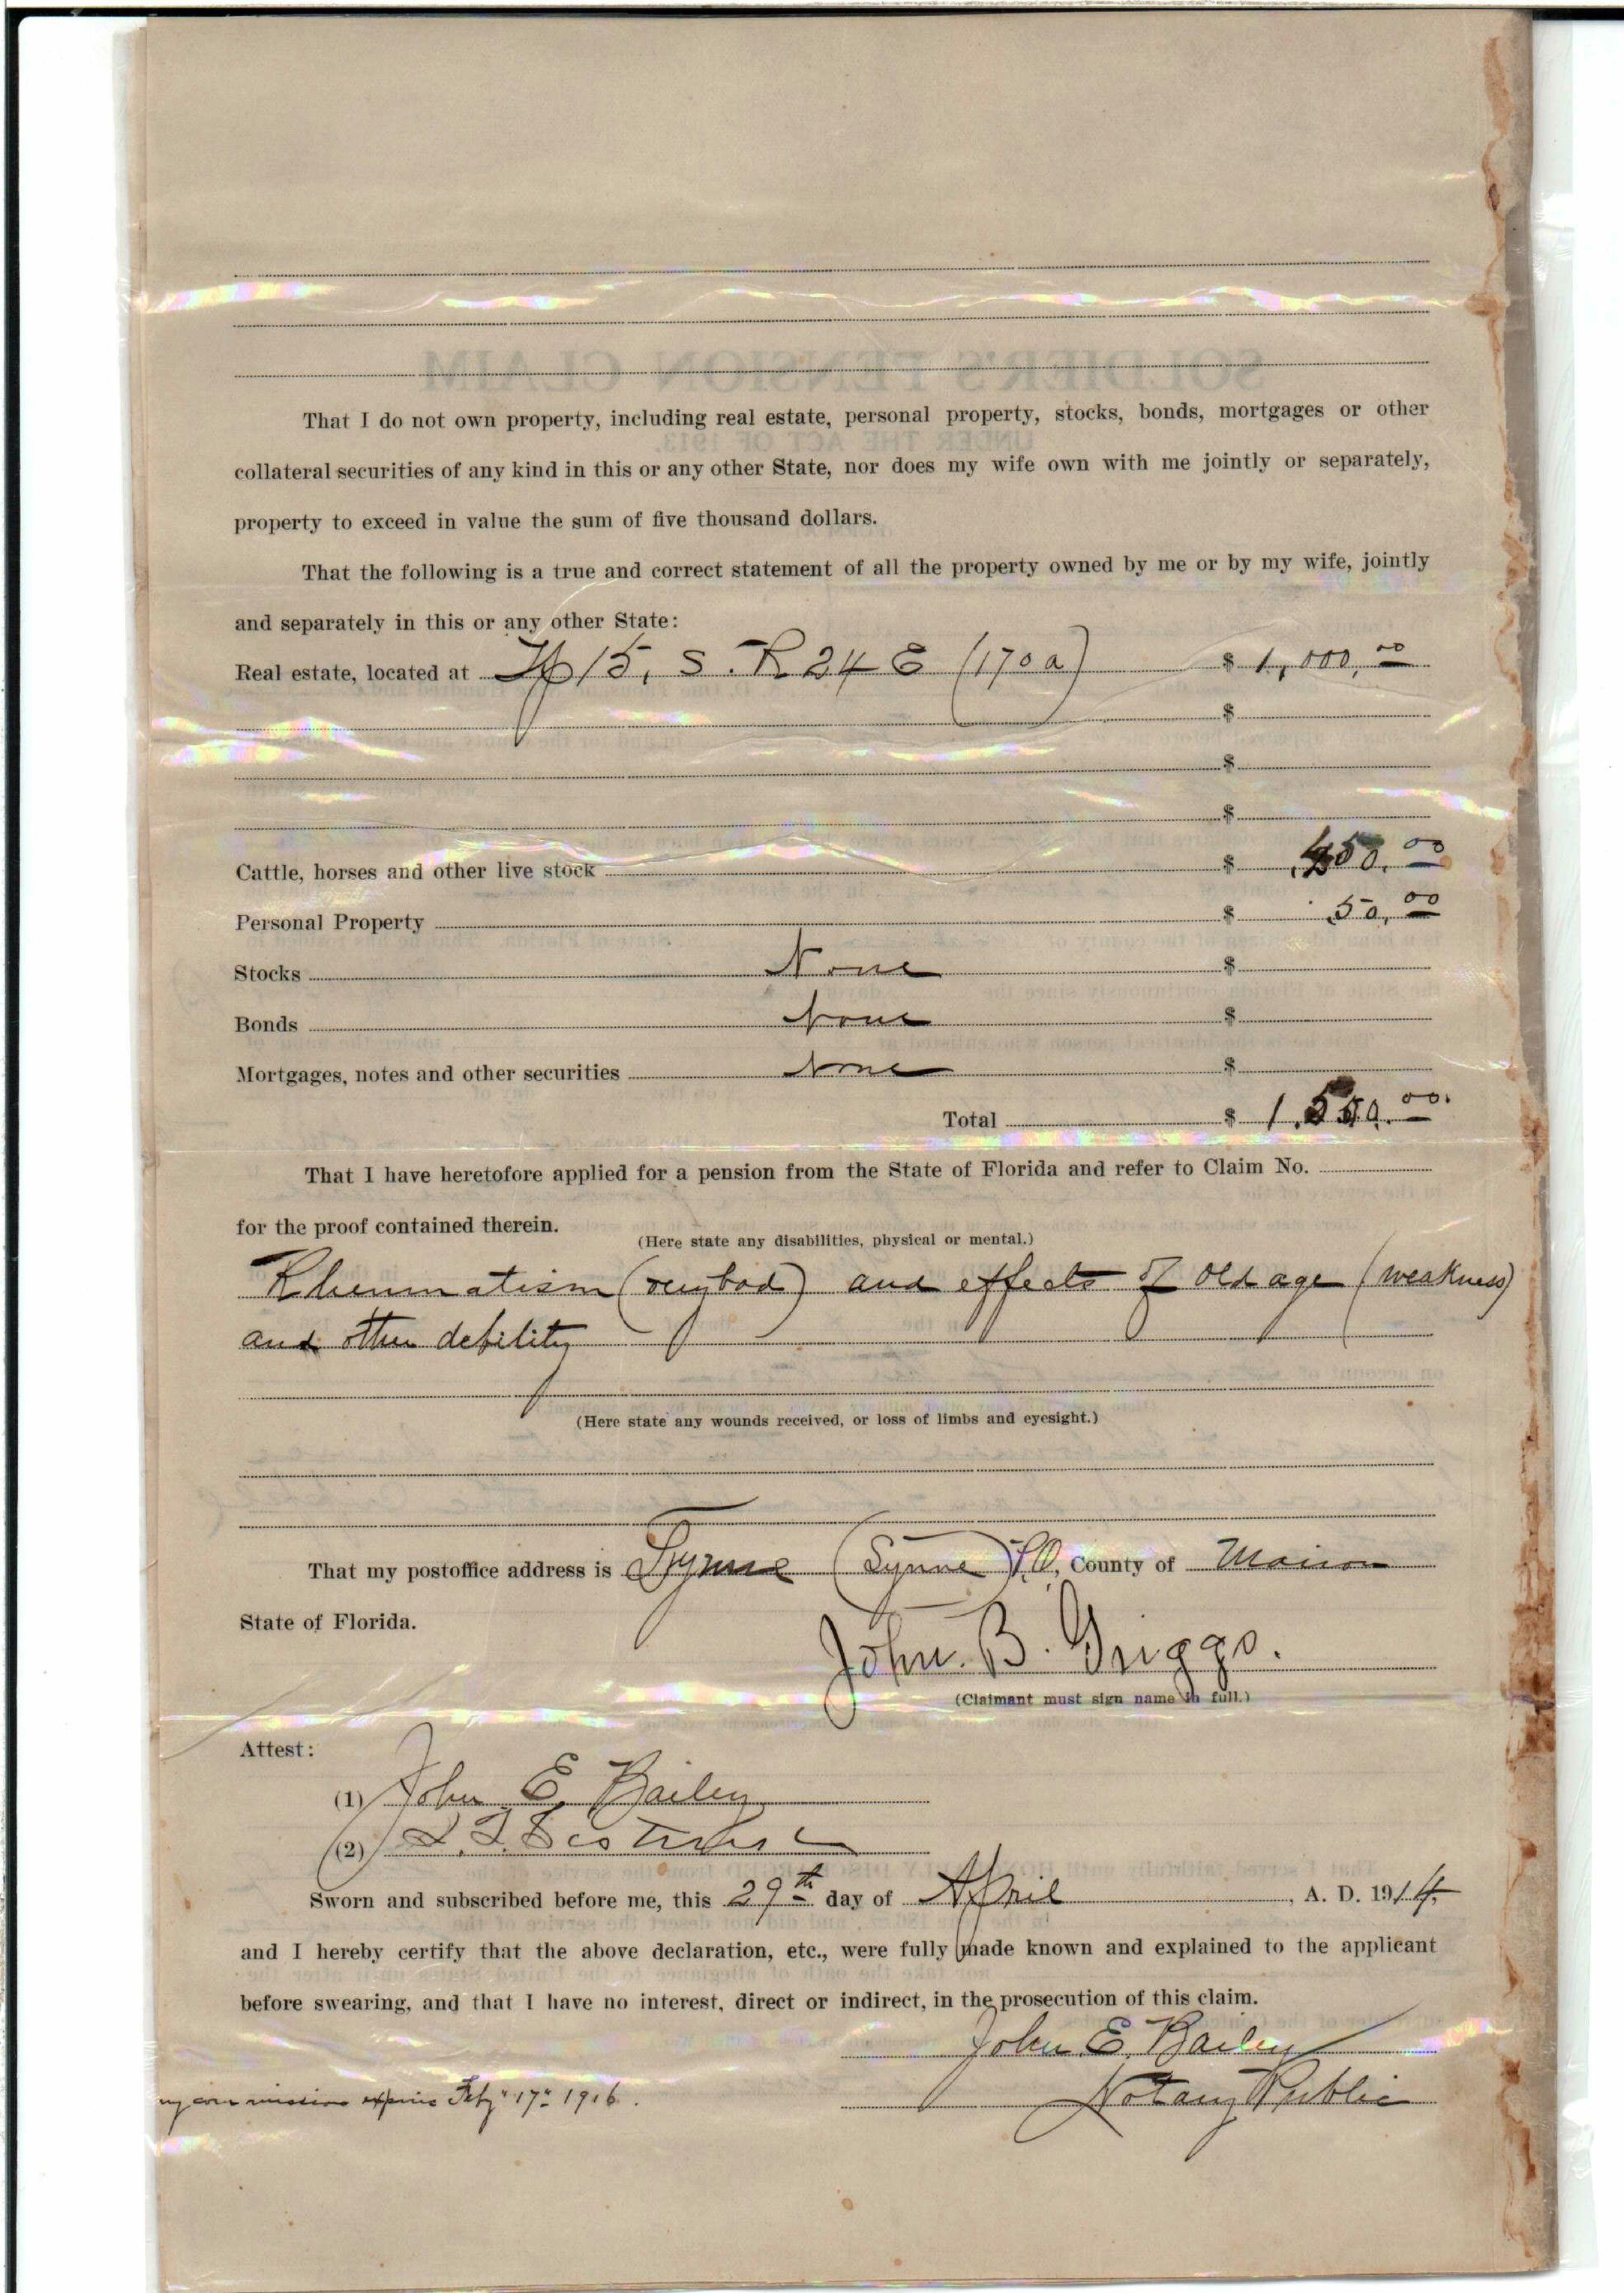 That I do not own property, including real estate, personal property, stocks, bonds, mortgages or other
collateral securities of any kind in this or any other State, nor does my wife own with me jointly or separately,
property to exceed in value the sum of five thousand dollars.
That the following is a true and correct statement of all the property owned by me or by my wife, jointly
and separately in this or any other State:
Real estate, located at Tp 15, S. R 24 E (170 a) $ 1,000,00
$
$
$
Cattle, horses and other live stock $ 450.00
Personal Property $ 50,00
Stocks None $
Bonds None $
Mortgages, notes and other securities None $
Total $ 1,500.00.
That I have heretofore applied for a pension from the State of Florida and refer to Claim No.
for the proof contained therein.
(Here state any disabilities, physical or mental.)
Rheumatism (very bad) and effects of old age (weakness)
and other debility
(Here state any wounds received, or loss of limbs and eyesight.)
That my postoffice address is Lynne (Lynne) P.O, County of Marion
State of Florida.
John. B. Griggs.
(Claimant must sign name in full.)
Attest:
(1) John E. Bailey
(2)
Sworn and subscribed before me, this 29th day of April, A. D. 1914.
and I hereby certify that the above declaration, etc., were fully made known and explained to the applicant
before swearing, and that I have no interest, direct or indirect, in the prosecution of this claim.
John E. Bailey
Notary Public
my commission expires Feby" 17" 1916.